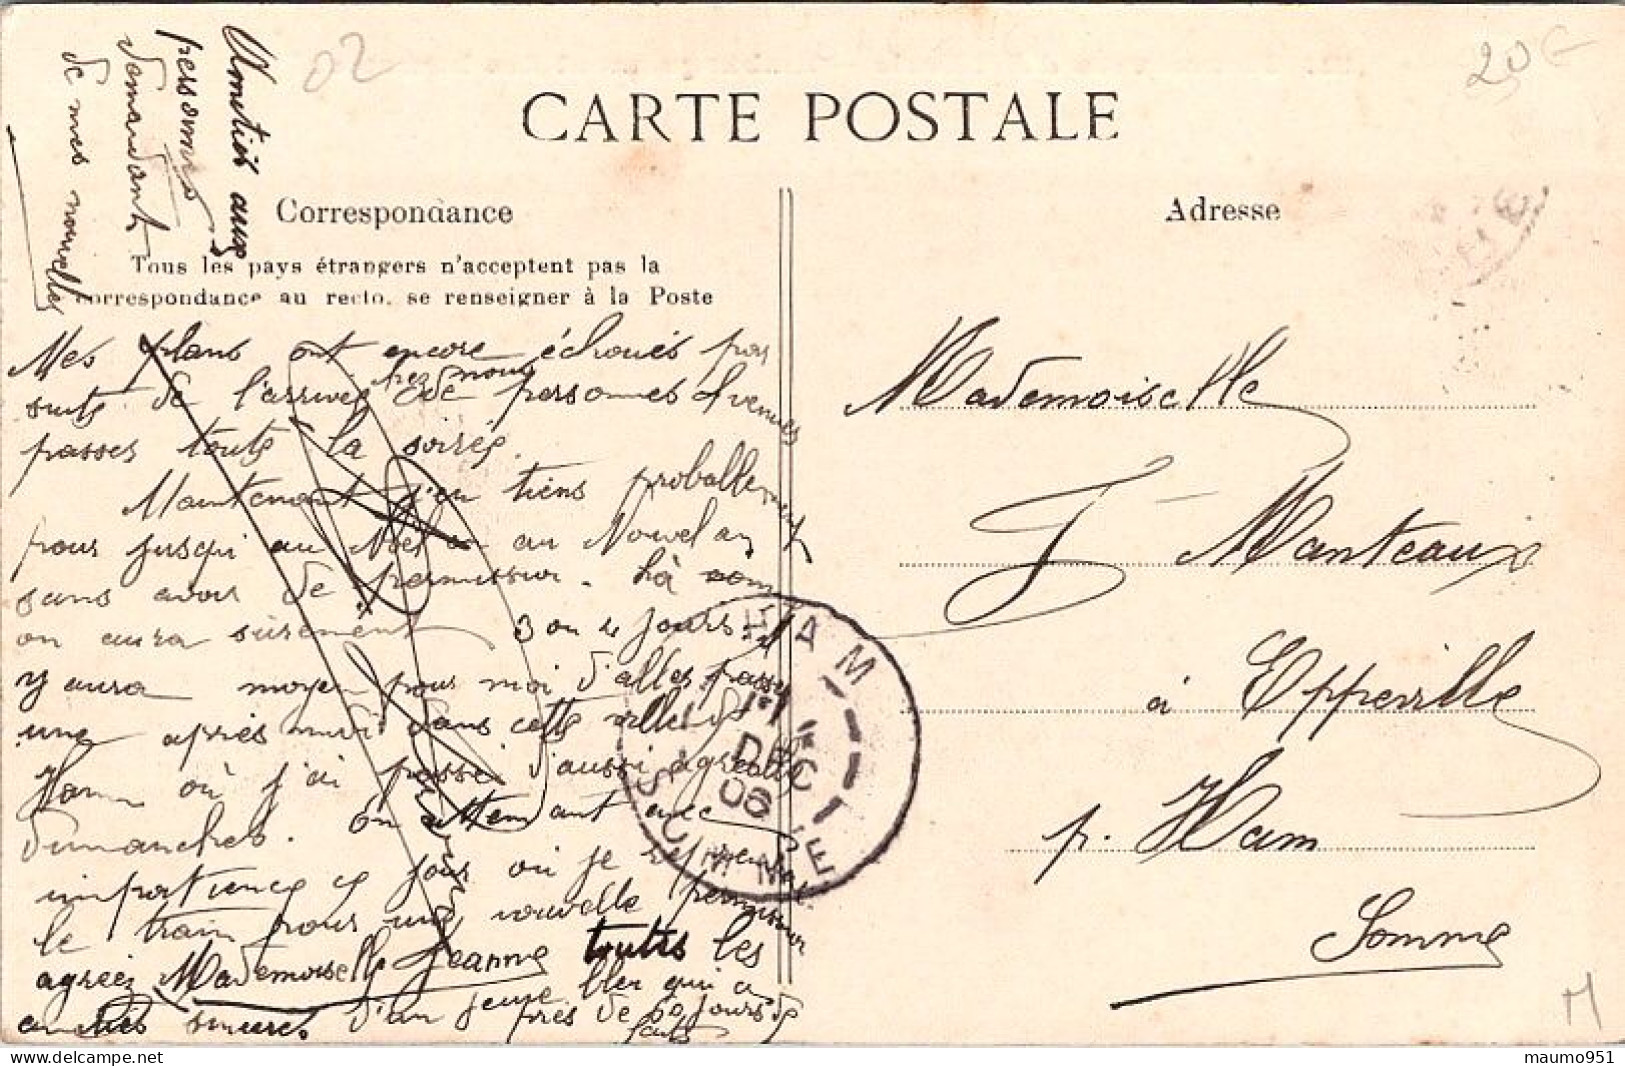 02
20€
CARTE POSTALE
Correspondance
Adresse
Tous les pays étrangers n'acceptent pas la
correspondance au recto, se renseigner à la Poste
Amitiés aux
personnes
demandant
de mes nouvelles
Mes plans ont encore échoués par
suite de l'arrivée chez nous de personnes venues
passer toute la soirée.
Maintenant j'en tiens proballement
pour jusqu'au Noël ou au Nouvel an
sans avoir de permission. Là
on aura sûrement 3 ou 4 jours il
y aura moyen pour moi d'aller passer
une après midi dans cette ville de
Ham où j'ai passé d'aussi agréable
dimanches. En attendant avec
impatience le jour où je reprendrai
le train pour une nouvelle permission
agréez Mademoiselle Jeanne toutes les
amitiés sincères d'un jeune bleu qui a
près de 60 jours de
faits
Mademoiselle
J Manteaux
à Eppeville
p. Ham
Somme
HAM
DEC
06
SOMME
M
maumo951